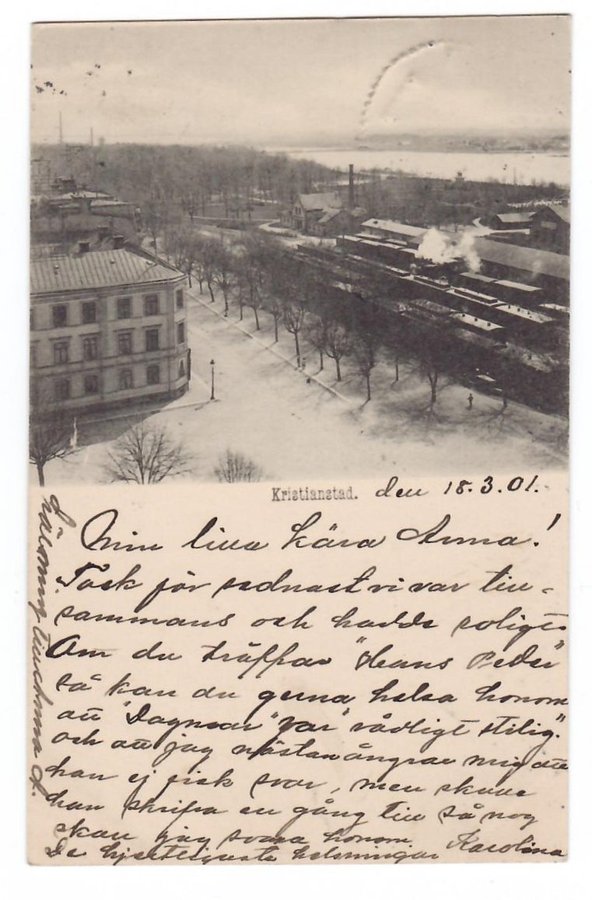 Kristianstad. den 18.3.01.
Min lilla kära Anna!
Tack för sednast vi var till-
sammans och hadde roligt.
Om du träffar "Hans Peder"
så kan du gerna helsa honom
att "Dagmar" var rådligt stilig."
och att jag nästan ångrar mig att
han ej fick svar, men skulle
han skrifva en gång till så nog
skall jag svara honom.
De hjertligaste helsningar Karolina
Hälsning till